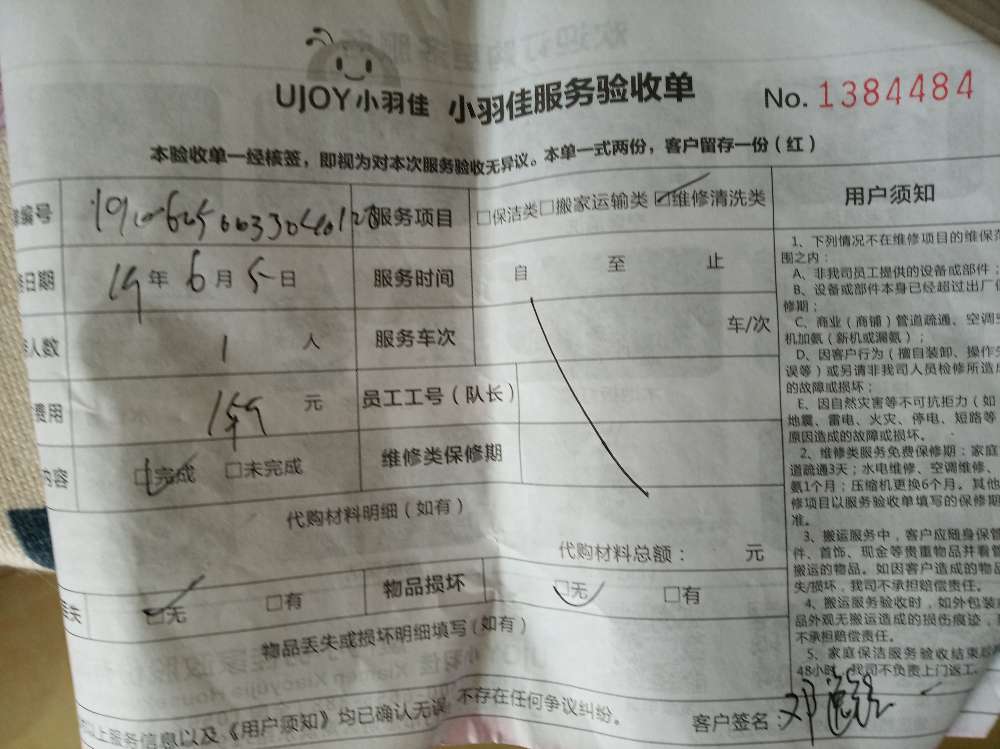 UJOY小羽佳 小羽佳服务验收单 No. 1384484
本验收单一经核签，即视为对本次服务验收无异议。本单一式两份，客户留存一份（红）
编号 服务项目 □保洁类□搬家运输类☑维修清洗类
日期 19年6月5日 服务时间 自 至 止
人数 1 人 服务车次 车/次
费用 元 员工工号（队长）
内容 ☑完成 □未完成 维修类保修期
代购材料明细（如有）
代购材料总额： 元
失 ☑无 □有 物品损坏 ☑无 □有
物品丢失或损坏明细填写（如有）
以上服务信息以及《用户须知》均已确认无误，不存在任何争议纠纷。
客户签名：邓
用户须知
1、下列情况不在维修项目的维保范
围之内：
A、非我司员工提供的设备或部件；
B、设备或部件本身已经超过出厂
修期；
C、商业（商铺）管道疏通、空调
机加氨（新机或漏氨）；
D、因客户行为（擅自装卸、操作
误等）或另请非我司人员检修所造成
的故障或损坏；
E、因自然灾害等不可抗拒力（如
地震、雷电、火灾、停电、短路等
原因造成的故障或损坏。
2、维修类服务免费保修期：家庭
道疏通3天；水电维修、空调维修、
氨1个月；压缩机更换6个月。其他
修项目以服务验收单填写的保修期
准。
3、搬运服务中，客户应随身保管
件、首饰、现金等贵重物品并看管
搬运的物品。如因客户造成的物品
失/损坏，我司不承担赔偿责任。
4、搬运服务验收时，如外包装
品外观无搬运造成的损伤痕迹，
不承担赔偿责任。
5、家庭保洁服务验收结束后
48小时，我司不负责上门返工。